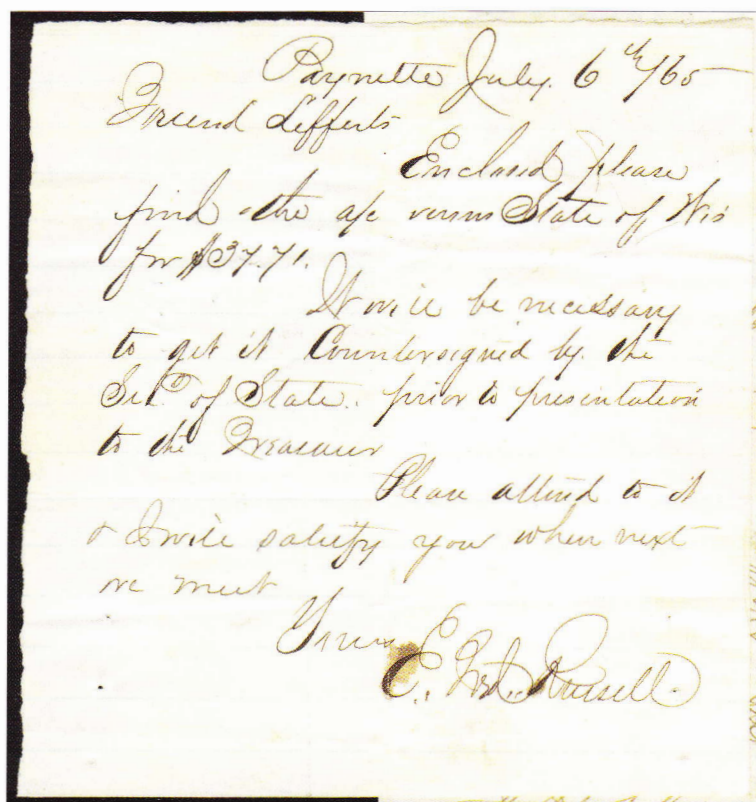 Poynette July. 6th /65
Friend Lefferts
Enclosed please
find the a/c versus State of Wis
for $37.71.
It will be necessary
to get it Countersigned by the
Sec. of State. prior to presentation
to the Treasurer
Please attend to it
& I will satisfy you when next
we meet
Yours
E. Fred. Russell.